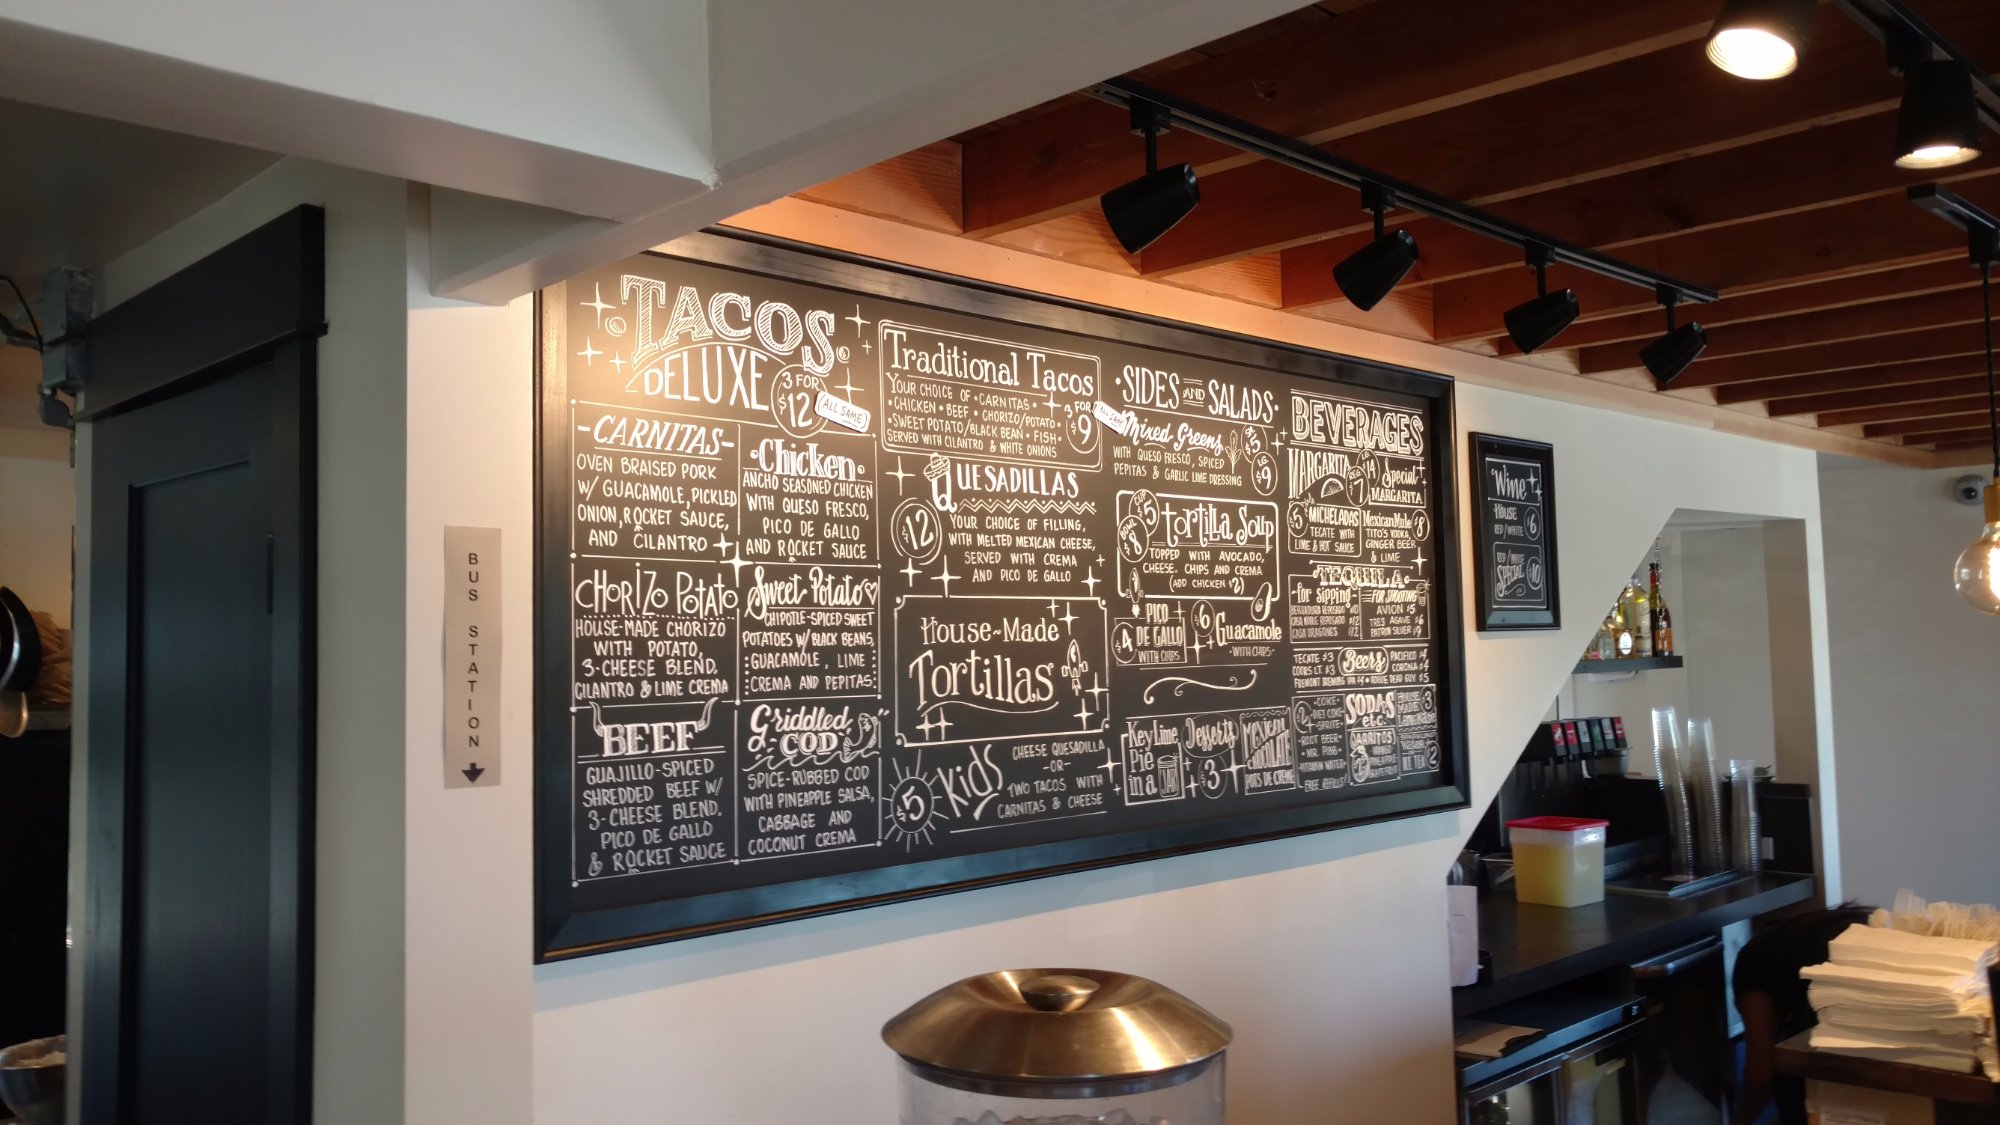 TACOS
DELUXE
3 FOR
$12
(ALL SAME)
-CARNITAS-
OVEN BRAISED PORK
W/ GUACAMOLE, PICKLED
ONION, ROCKET SAUCE,
AND CILANTRO
·Chicken·
ANCHO SEASONED CHICKEN
WITH QUESO FRESCO,
PICO DE GALLO
AND ROCKET SAUCE
CHORIZO POTATO
HOUSE-MADE CHORIZO
WITH POTATO,
3-CHEESE BLEND,
CILANTRO & LIME CREMA
Sweet Potato
CHIPOTLE-SPICED SWEET
POTATOES W/ BLACK BEANS,
GUACAMOLE, LIME
CREMA AND PEPITAS
BEEF
GUAJILLO-SPICED
SHREDDED BEEF W/
3-CHEESE BLEND,
PICO DE GALLO
& ROCKET SAUCE
Griddled
COD
SPICE-RUBBED COD
WITH PINEAPPLE SALSA,
CABBAGE AND
COCONUT CREMA
Traditional Tacos
YOUR CHOICE OF · CARNITAS ·
· CHICKEN · BEEF · CHORIZO/POTATO ·
· SWEET POTATO/BLACK BEAN · FISH ·
SERVED WITH CILANTRO & WHITE ONIONS
3 FOR
$9
ALL SAME
QUESADILLAS
$12
YOUR CHOICE OF FILLING,
WITH MELTED MEXICAN CHEESE,
SERVED WITH CREMA
AND PICO DE GALLO
House-Made
Tortillas
$5
KIDS
CHEESE QUESADILLA
-OR-
TWO TACOS WITH
CARNITAS & CHEESE
·SIDES AND SALADS·
Mixed Greens
WITH QUESO FRESCO, SPICED
PEPITAS & GARLIC LIME DRESSING
$5
LG
$9
CUP
$5
BOWL
$8
Tortilla Soup
TOPPED WITH AVOCADO,
CHEESE, CHIPS AND CREMA
(ADD CHICKEN $2)
$4
PICO
DE GALLO
WITH CHIPS
$6
Guacamole
-WITH CHIPS-
Key Lime
Pie
in a
JAR
Desserts
$3
MEXICAN
CHOCOLATE
POTS DE CREME
BEVERAGES
MARGARITA
REG
$7
LG
$14
Special
MARGARITA
$5
MICHELADAS
TECATE WITH
LIME & HOT SAUCE
Mexican Mule
$8
TITO'S VODKA,
GINGER BEER
& LIME
TEQUILA
-for sipping-
HERRADURA REPOSADO $10
CASA NOBLE REPOSADO $12
CASA DRAGONES $12
FOR SHOOTING
AVION $5
TRES AGAVE $6
PATRON SILVER $9
Beers
TECATE $3
COORS LT. $3
FREMONT BREWING IPA $4
PACIFICO $4
CORONA $4
ROGUE DEAD GUY $5
$2
-COKE-
-DIET COKE-
-SPRITE-
-ROOT BEER-
-MR. PIBB-
-VITAMIN WATER-
FREE REFILLS!
SODAS
etc.
JARRITOS
MANGO
PINEAPPLE
GRAPEFRUIT
HOUSE
MADE
Lemonade
$3
ICE TEA
$2
Wine
HOUSE
RED/WHITE
$6
RED/WHITE
SPECIAL
$10
BUS STATION